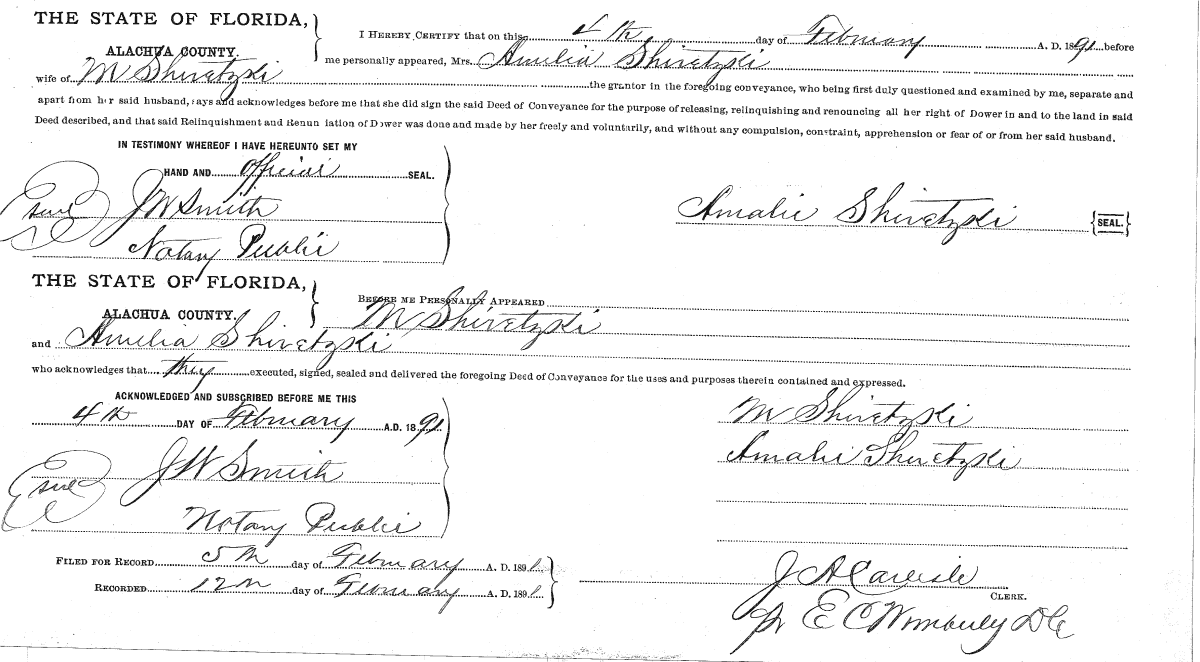 THE STATE OF FLORIDA,
ALACHUA COUNTY.
I HEREBY CERTIFY that on this 4th day of February A. D. 1891 before
me personally appeared, Mrs. Amelia Shiretzski
wife of M Shiretzski the grantor in the foregoing conveyance, who being first duly questioned and examined by me, separate and
apart from her said husband, says and acknowledges before me that she did sign the said Deed of Conveyance for the purpose of releasing, relinquishing and renouncing all her right of Dower in and to the land in said
Deed described, and that said Relinquishment and Renun iation of Dower was done and made by her freely and voluntarily, and without any compulsion, constraint, apprehension or fear of or from her said husband.
IN TESTIMONY WHEREOF I HAVE HEREUNTO SET MY
HAND AND official SEAL.
Seal J W Smith
Notary Public
Amalie Shiretzski {SEAL.}
THE STATE OF FLORIDA,
ALACHUA COUNTY.
BEFORE ME PERSONALLY APPEARED
M Shiretzski
and Amelia Shiretzski
who acknowledges that they executed, signed, sealed and delivered the foregoing Deed of Conveyance for the uses and purposes therein contained and expressed.
ACKNOWLEDGED AND SUBSCRIBED BEFORE ME THIS
4th DAY OF February A.D. 1891
Seal J W Smith
Notary Public
M Shiretzski
Amalie Shiretzski
FILED FOR RECORD 5th day of February A. D. 1891
RECORDED 12th day of February A. D. 1891
J A Carlisle
CLERK.
pr E C Wimberly D C